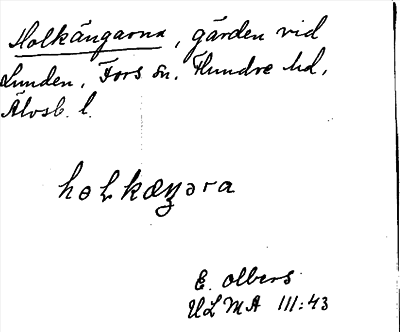 Holkängarna, gärden vid
Lunden, Fors sn. Flundre hd,
Älvsb. l.
hɵLkæŋəra
E. Olbers
ULMA 111:43